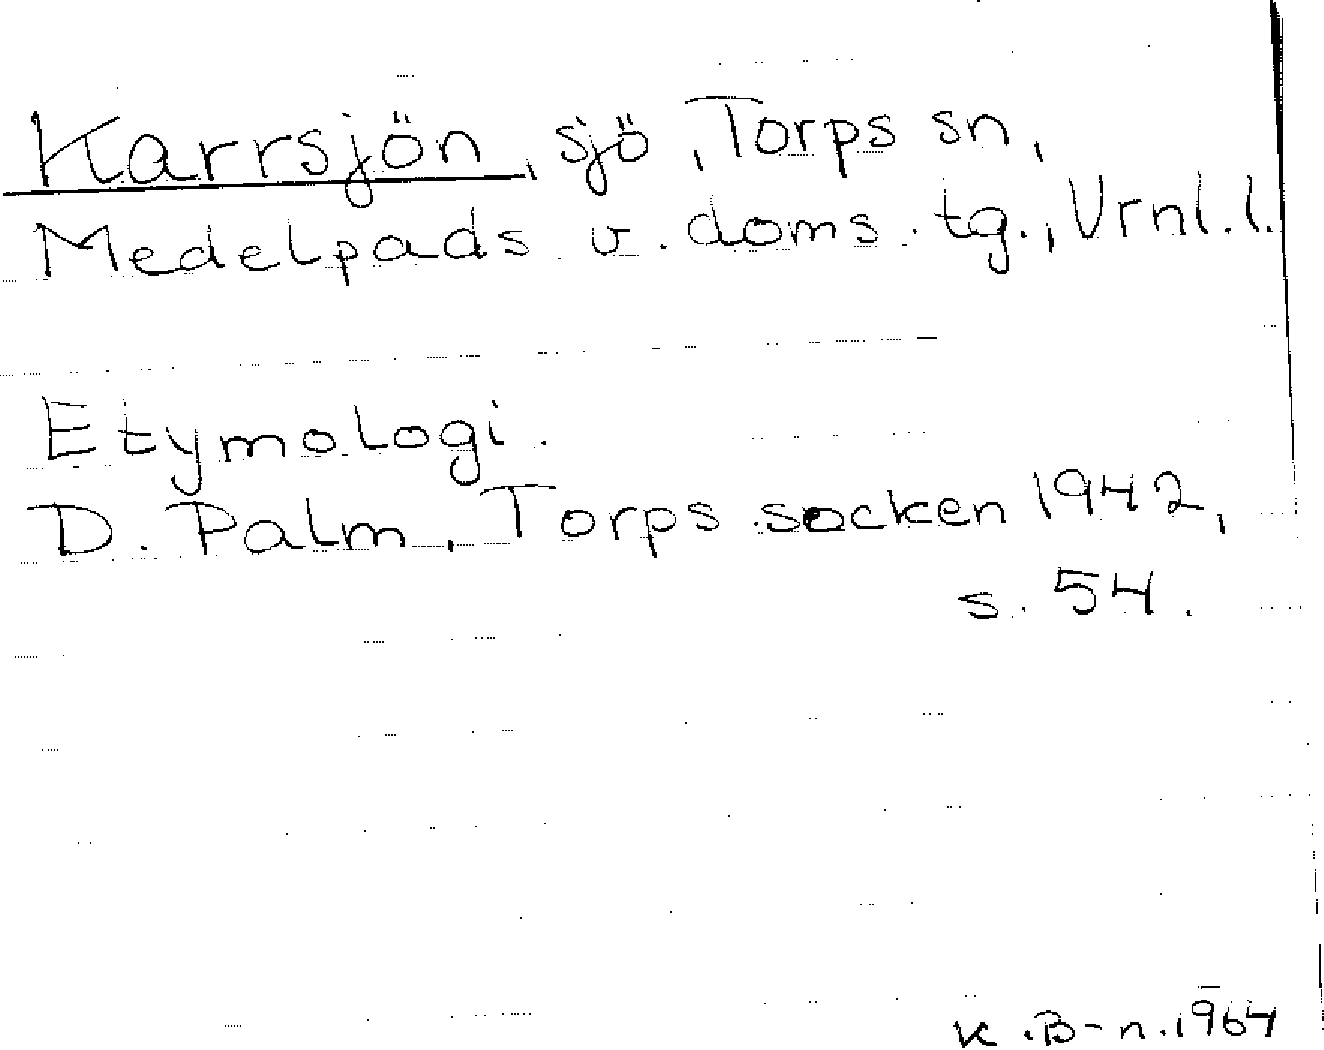 Karrsjön, sjö, Torps sn,
Medelpads v. doms. tg., Vrnl. l.
Etymologi.
D. Palm, Torps socken 1942,
s. 54.
K. B-n. 1964